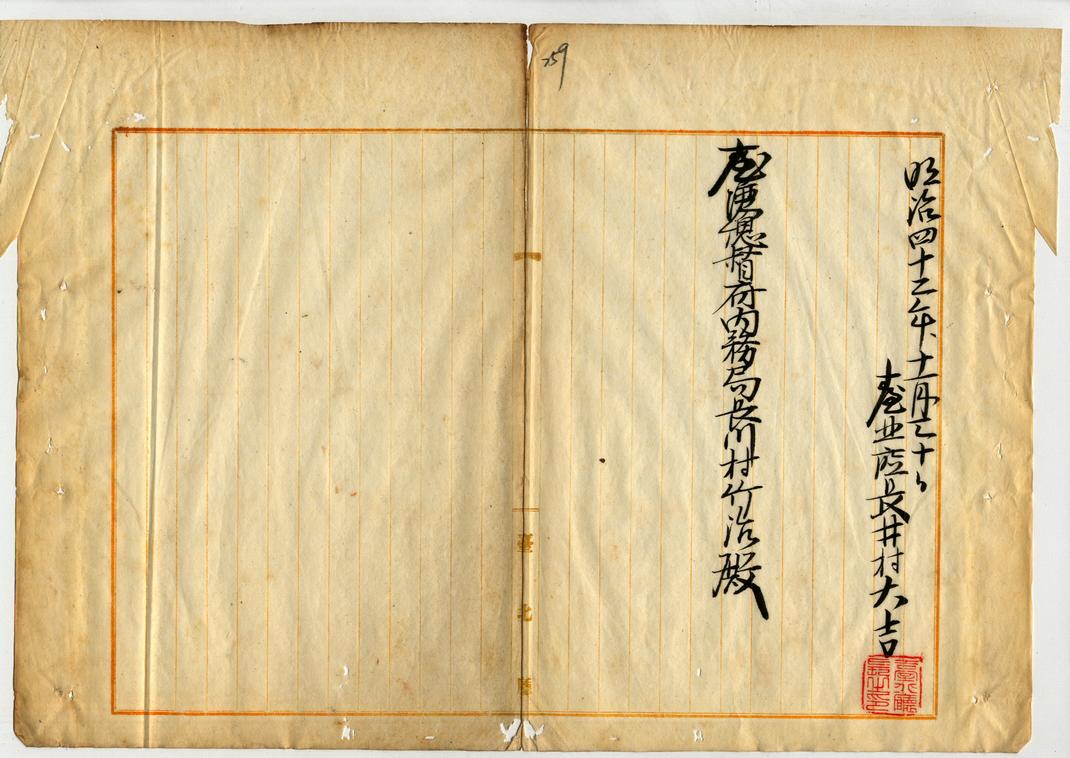 259
明治四十二年、十一月三十日
臺北廳長井村大吉
臺北廳長之印
臺灣總督府内務局長川村竹治殿
臺北廳